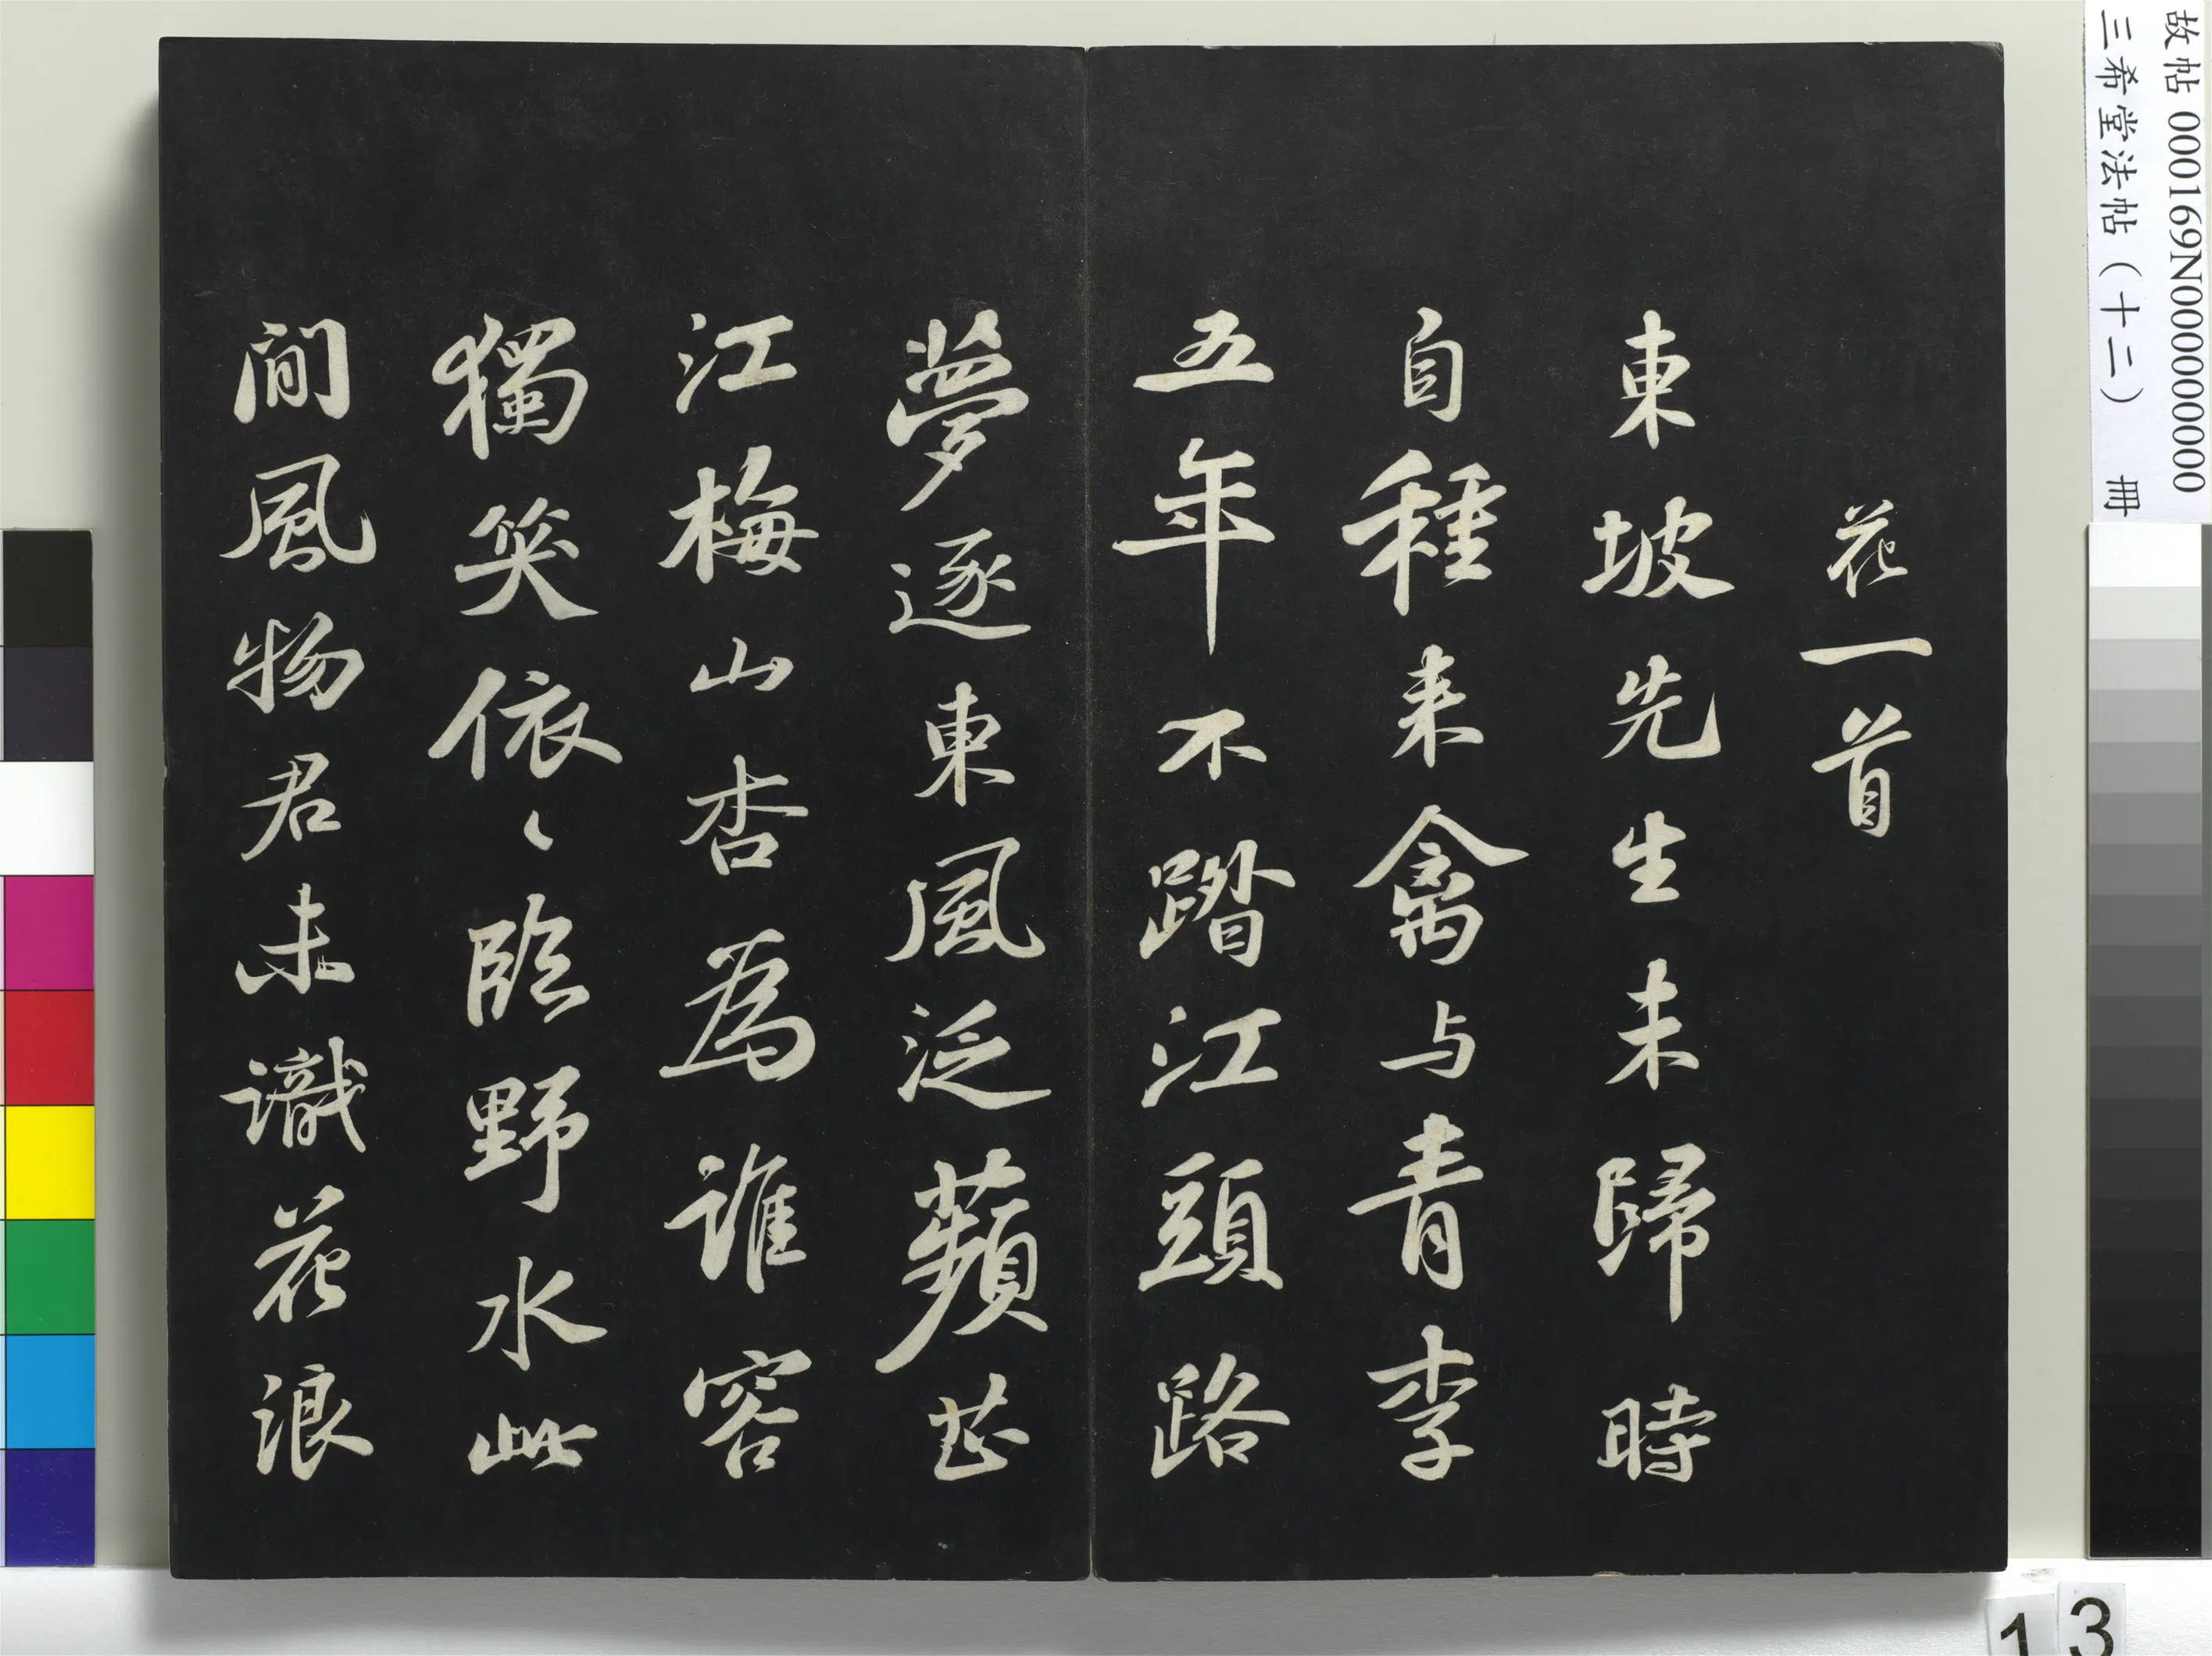 花一首
東坡先生未歸時
自種来禽与青李
五年不踏江頭路
夢逐東風泛蘋芷
江梅山杏為誰容
獨笑依〻臨野水此
間風物君未識花浪
故帖 000169N000000000
三希堂法帖(十二) 冊
13